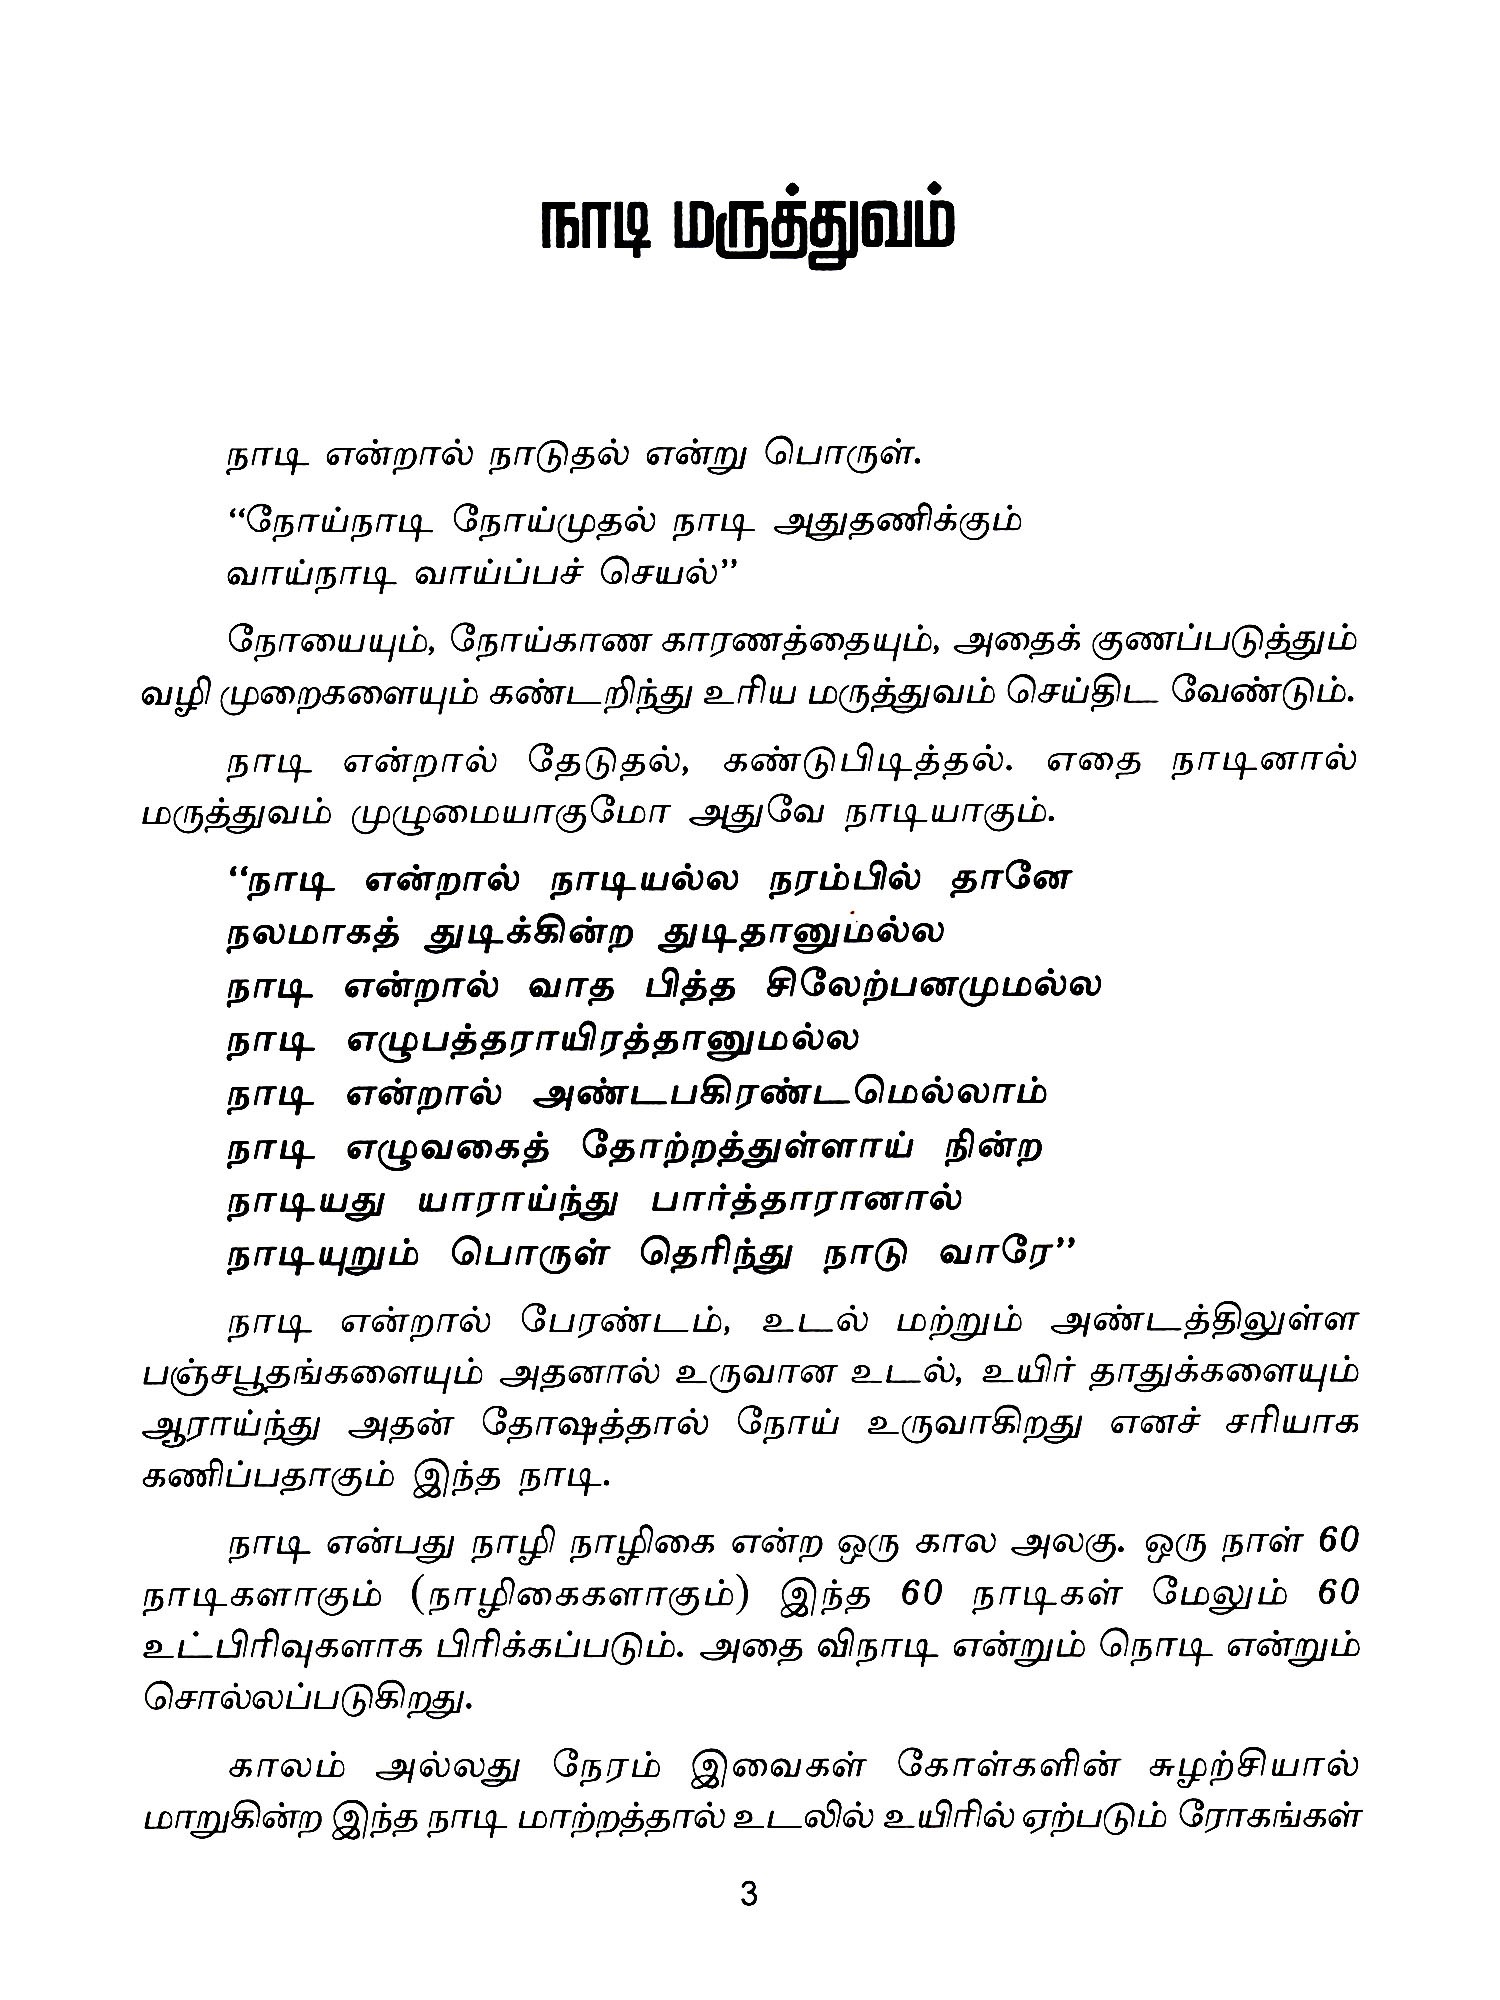 நாடி மருத்துவம்
நாடி என்றால் நாடுதல் என்று பொருள்.
“நோய்நாடி நோய்முதல் நாடி அதுதணிக்கும்
வாய்நாடி வாய்ப்பச் செயல்”
நோயையும், நோய்காண காரணத்தையும், அதைக் குணப்படுத்தும்
வழி முறைகளையும் கண்டறிந்து உரிய மருத்துவம் செய்திட வேண்டும்.
நாடி என்றால் தேடுதல், கண்டுபிடித்தல். எதை நாடினால்
மருத்துவம் முழுமையாகுமோ அதுவே நாடியாகும்.
“நாடி என்றால் நாடியல்ல நரம்பில் தானே
நலமாகத் துடிக்கின்ற துடிதானுமல்ல
நாடி என்றால் வாத பித்த சிலேற்பனமுமல்ல
நாடி எழுபத்தராயிரத்தானுமல்ல
நாடி என்றால் அண்டபகிரண்டமெல்லாம்
நாடி எழுவகைத் தோற்றத்துள்ளாய் நின்ற
நாடியது யாராய்ந்து பார்த்தாரானால்
நாடியுறும் பொருள் தெரிந்து நாடு வாரே”
நாடி என்றால் பேரண்டம், உடல் மற்றும் அண்டத்திலுள்ள
பஞ்சபூதங்களையும் அதனால் உருவான உடல், உயிர் தாதுக்களையும்
ஆராய்ந்து அதன் தோஷத்தால் நோய் உருவாகிறது எனச் சரியாக
கணிப்பதாகும் இந்த நாடி.
நாடி என்பது நாழி நாழிகை என்ற ஒரு கால அலகு. ஒரு நாள் 60
நாடிகளாகும் (நாழிகைகளாகும்) இந்த 60 நாடிகள் மேலும் 60
உட்பிரிவுகளாக பிரிக்கப்படும். அதை விநாடி என்றும் நொடி என்றும்
சொல்லப்படுகிறது.
காலம் அல்லது நேரம் இவைகள் கோள்களின் சுழற்சியால்
மாறுகின்ற இந்த நாடி மாற்றத்தால் உடலில் உயிரில் ஏற்படும் ரோகங்கள்
3